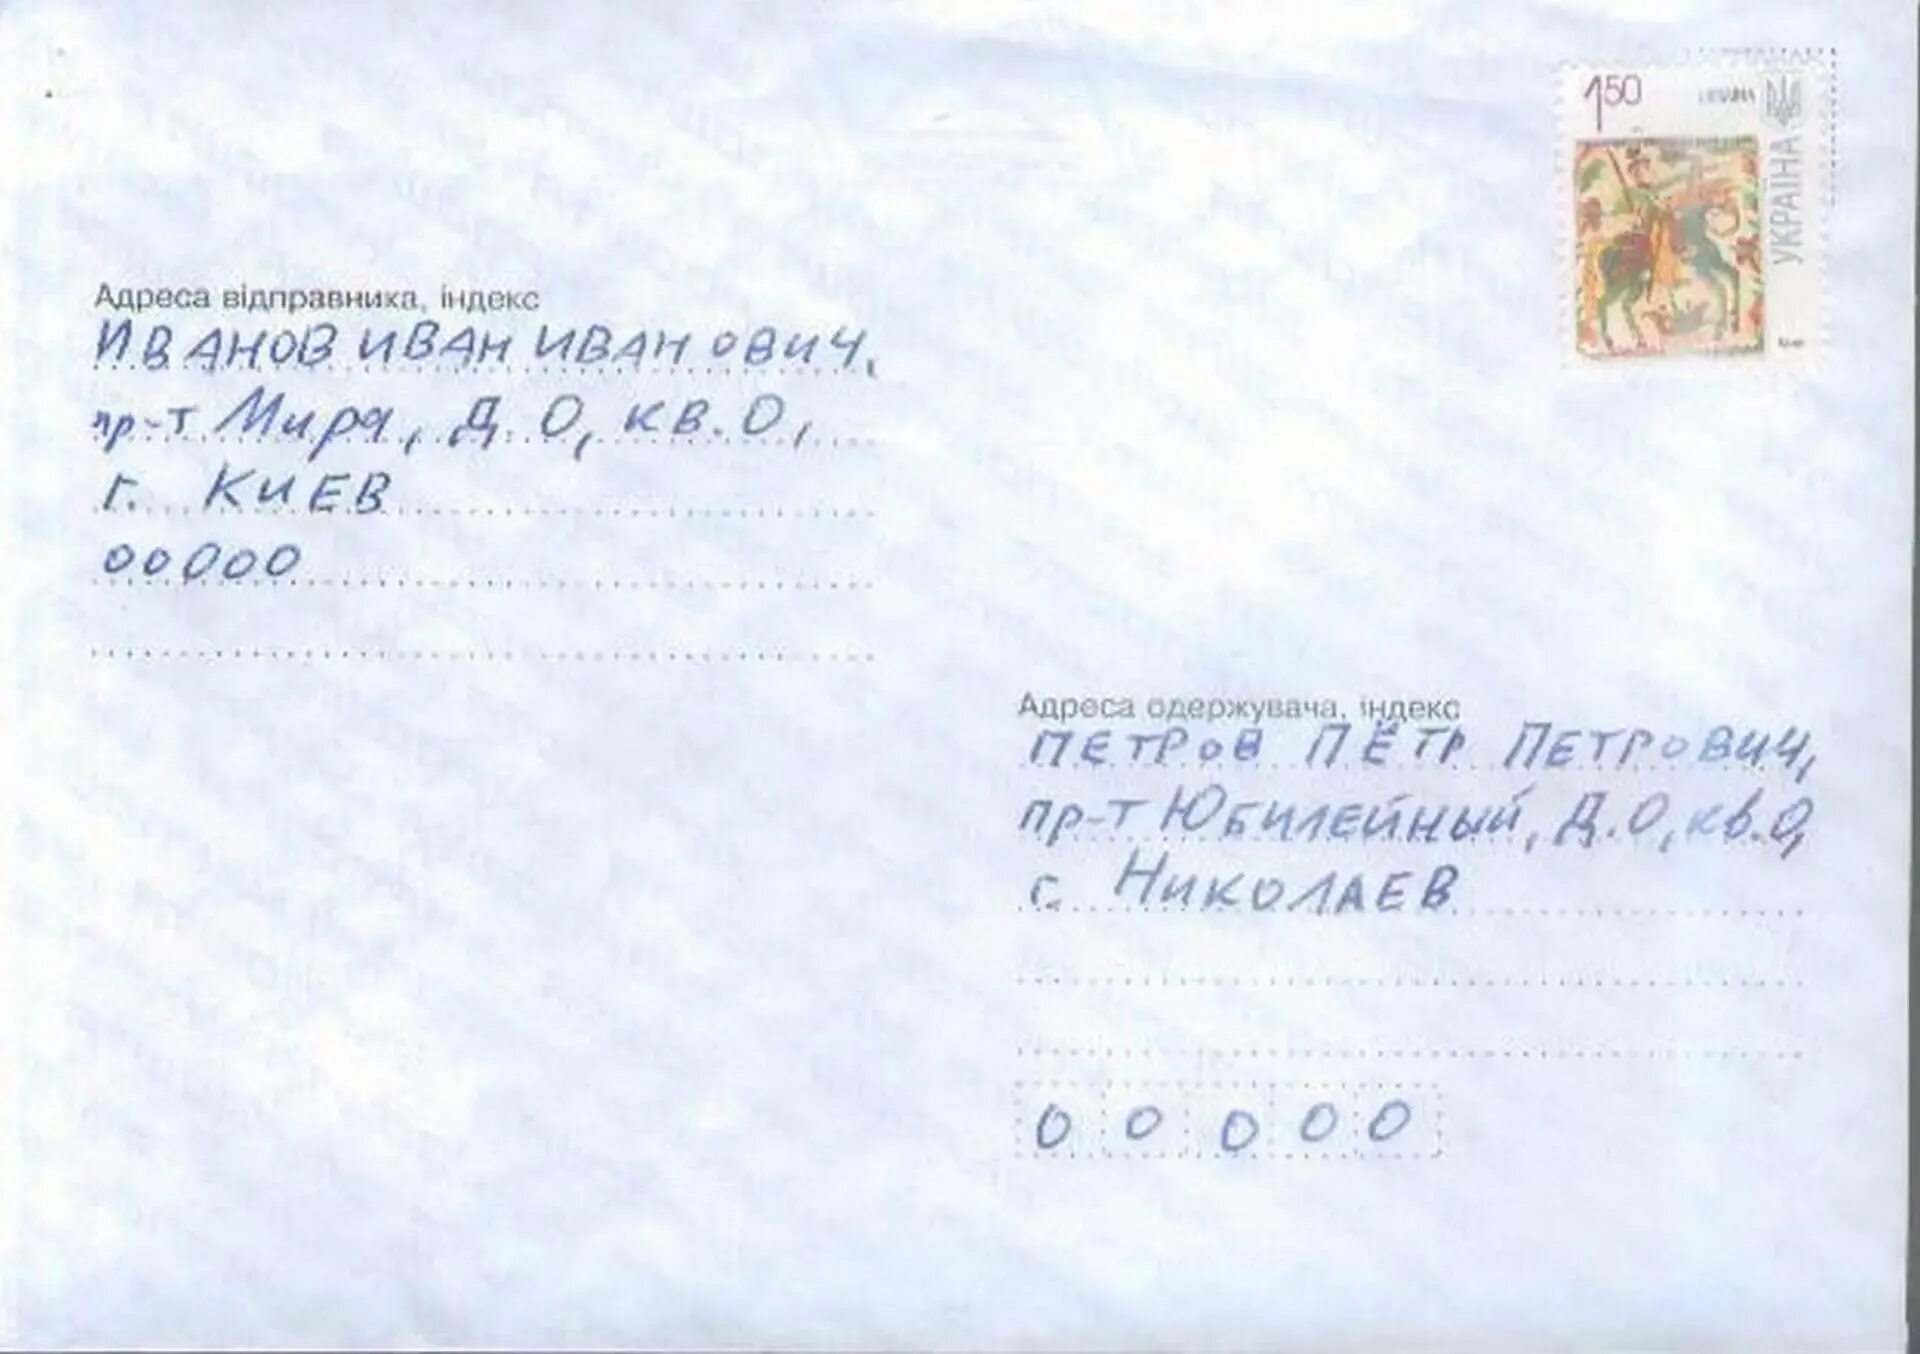 1 50
УКРАЇНА
Адреса відправника, індекс
ИВАНОВ ИВАН ИВАНОВИЧ,
пр-т Мира, Д.О, кв.О,
г. КИЕВ
00000
Адреса одержувача, індекс
ПЕТРОВ ПЁТР ПЕТРОВИЧ,
пр-т Юбилейный, Д.О, кв.О,
г. НИКОЛАЕВ
00000